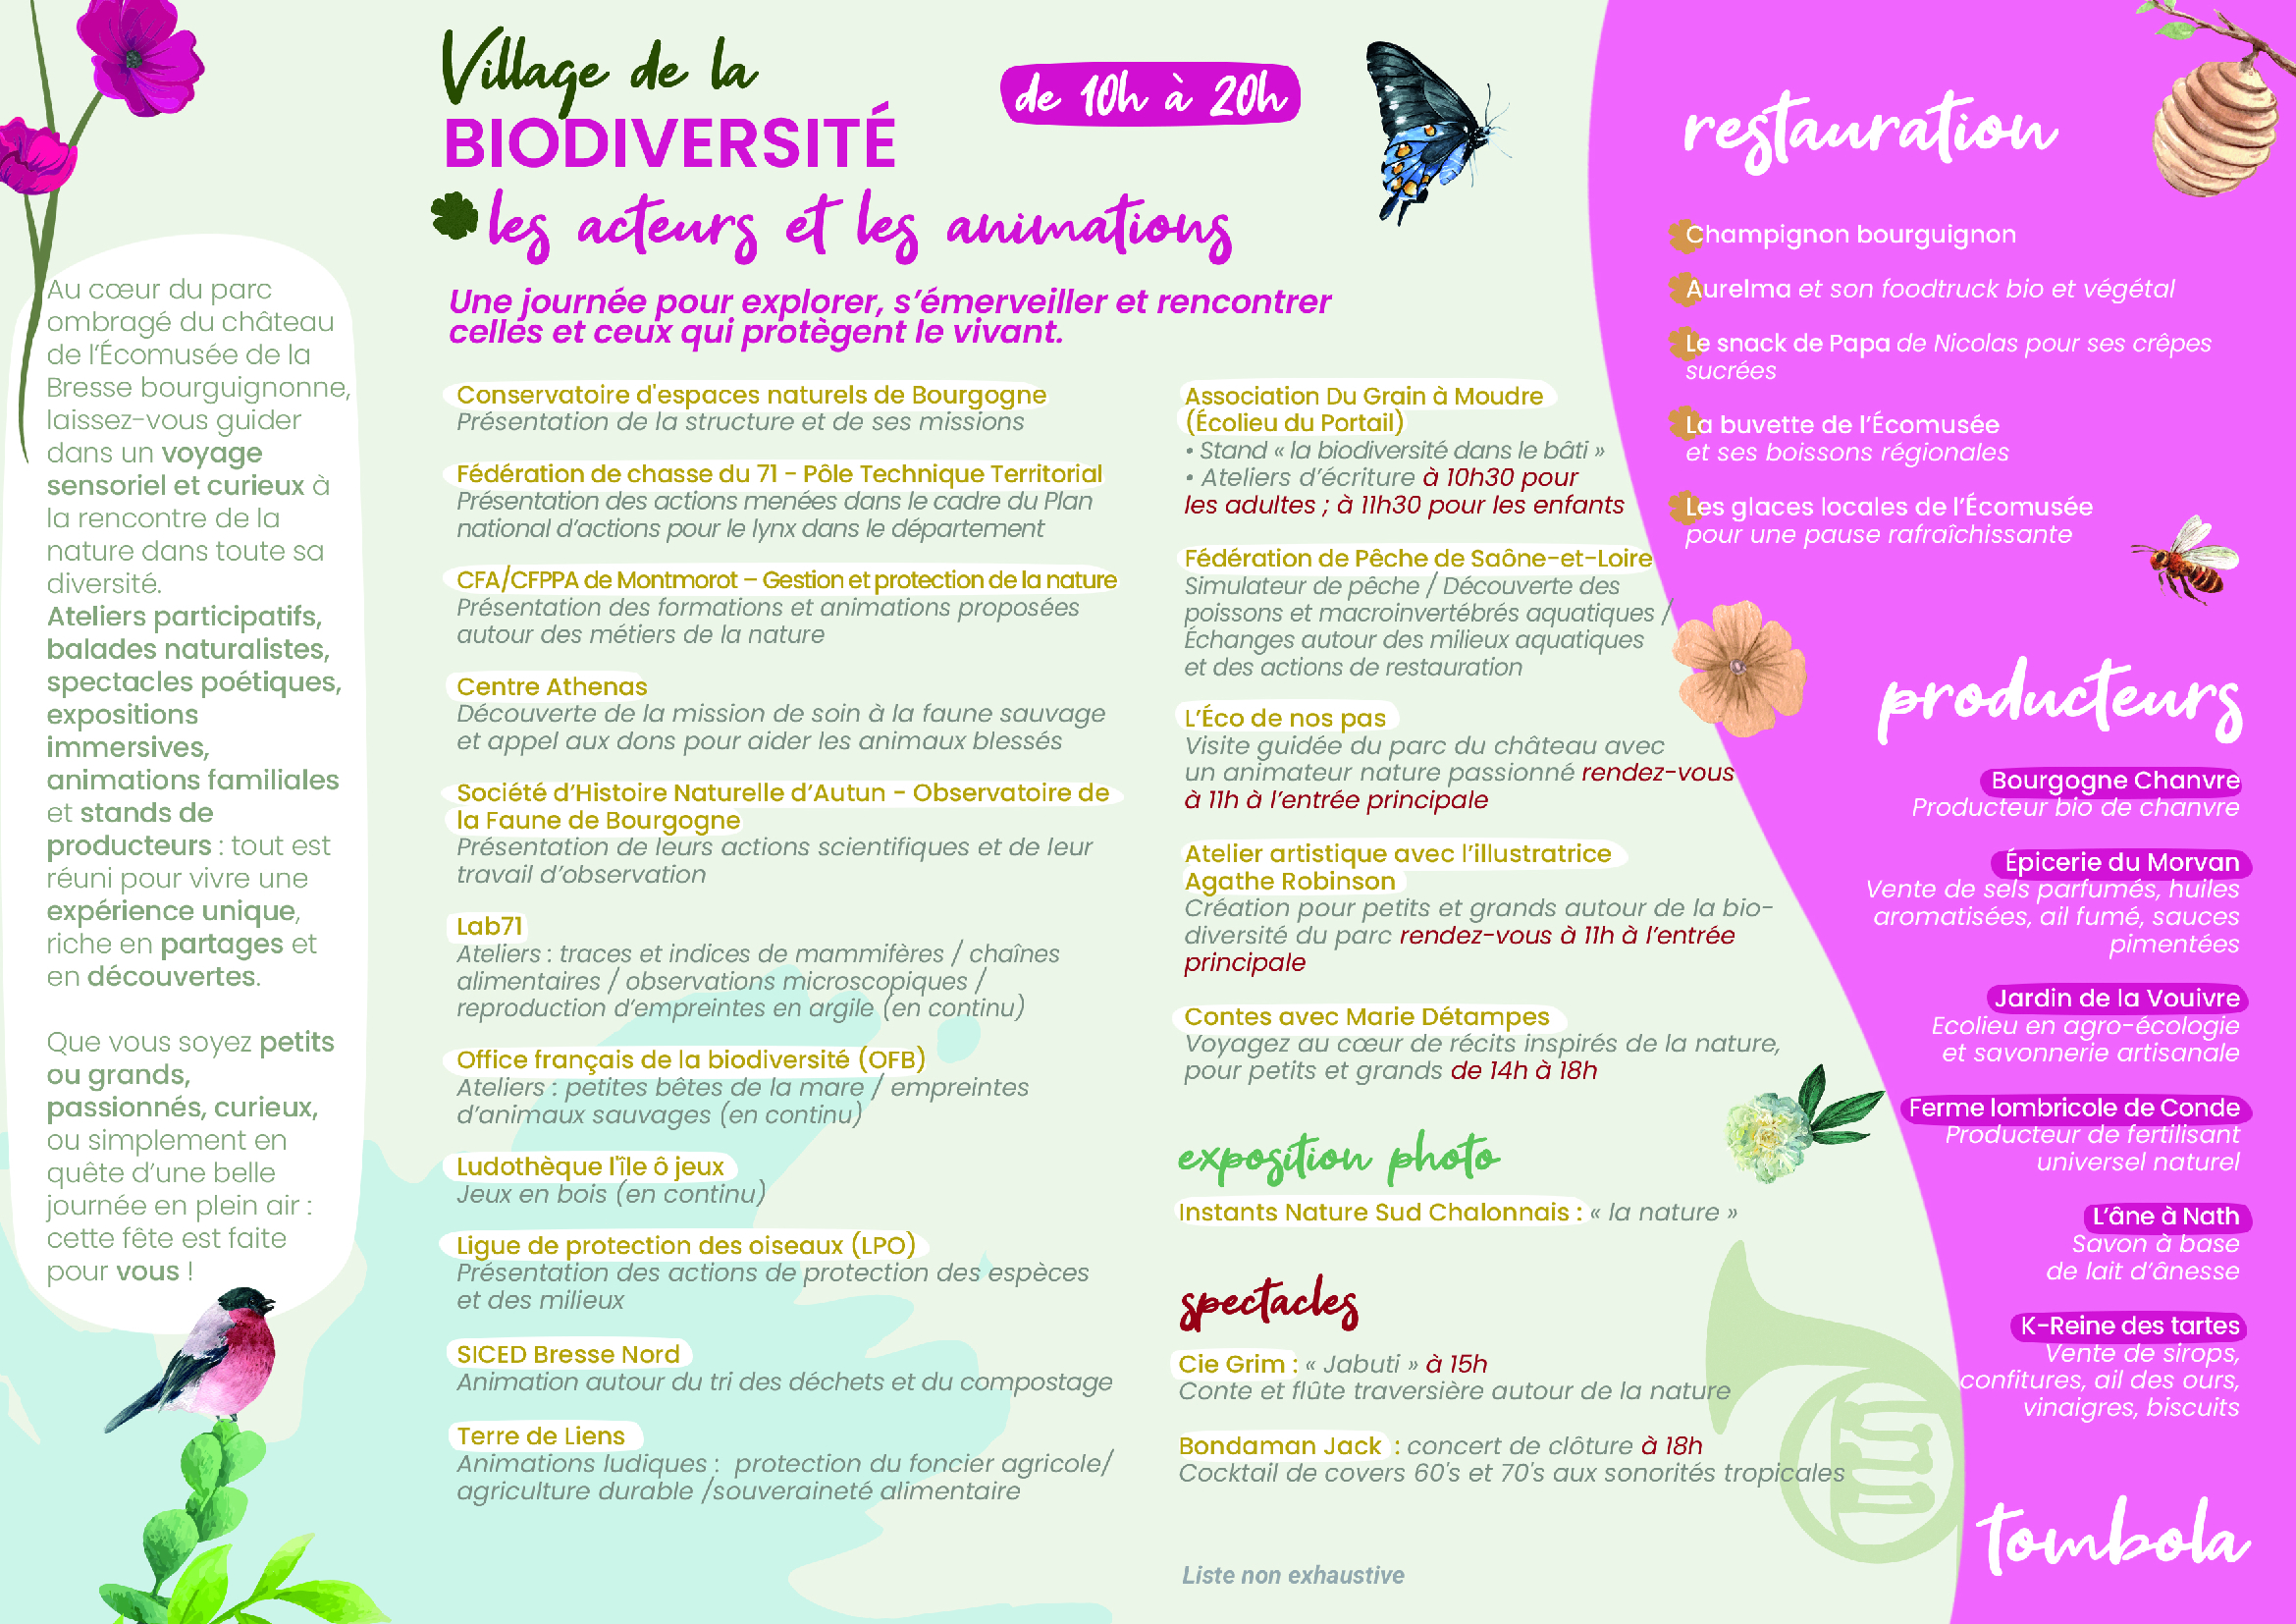 Au cœur du parc
ombragé du château
de l’Écomusée de la
Bresse bourguignonne,
laissez-vous guider
dans un voyage
sensoriel et curieux à
la rencontre de la
nature dans toute sa
diversité.
Ateliers participatifs,
balades naturalistes,
spectacles poétiques,
expositions
immersives,
animations familiales
et stands de
producteurs : tout est
réuni pour vivre une
expérience unique,
riche en partages et
en découvertes.
Que vous soyez petits
ou grands,
passionnés, curieux,
ou simplement en
quête d’une belle
journée en plein air :
cette fête est faite
pour vous !
Village de la
BIODIVERSITÉ
de 10h à 20h
les acteurs et les animations
Une journée pour explorer, s’émerveiller et rencontrer
celles et ceux qui protègent le vivant.
Conservatoire d'espaces naturels de Bourgogne
Présentation de la structure et de ses missions
Fédération de chasse du 71 - Pôle Technique Territorial
Présentation des actions menées dans le cadre du Plan
national d’actions pour le lynx dans le département
CFA/CFPPA de Montmorot – Gestion et protection de la nature
Présentation des formations et animations proposées
autour des métiers de la nature
Centre Athenas
Découverte de la mission de soin à la faune sauvage
et appel aux dons pour aider les animaux blessés
Société d’Histoire Naturelle d’Autun - Observatoire de
la Faune de Bourgogne
Présentation de leurs actions scientifiques et de leur
travail d’observation
Lab71
Ateliers : traces et indices de mammifères / chaînes
alimentaires / observations microscopiques /
reproduction d’empreintes en argile (en continu)
Office français de la biodiversité (OFB)
Ateliers : petites bêtes de la mare / empreintes
d’animaux sauvages (en continu)
Ludothèque l'île ô jeux
Jeux en bois (en continu)
Ligue de protection des oiseaux (LPO)
Présentation des actions de protection des espèces
et des milieux
SICED Bresse Nord
Animation autour du tri des déchets et du compostage
Terre de Liens
Animations ludiques : protection du foncier agricole/
agriculture durable /souveraineté alimentaire
Association Du Grain à Moudre
(Écolieu du Portail)
• Stand « la biodiversité dans le bâti »
• Ateliers d’écriture à 10h30 pour
les adultes ; à 11h30 pour les enfants
Fédération de Pêche de Saône-et-Loire
Simulateur de pêche / Découverte des
poissons et macroinvertébrés aquatiques /
Échanges autour des milieux aquatiques
et des actions de restauration
L’Éco de nos pas
Visite guidée du parc du château avec
un animateur nature passionné rendez-vous
à 11h à l’entrée principale
Atelier artistique avec l’illustratrice
Agathe Robinson
Création pour petits et grands autour de la bio-
diversité du parc rendez-vous à 11h à l’entrée
principale
Contes avec Marie Détampes
Voyagez au cœur de récits inspirés de la nature,
pour petits et grands de 14h à 18h
exposition photo
Instants Nature Sud Chalonnais : « la nature »
spectacles
Cie Grim : « Jabuti » à 15h
Conte et flûte traversière autour de la nature
Bondaman Jack : concert de clôture à 18h
Cocktail de covers 60's et 70's aux sonorités tropicales
Liste non exhaustive
restauration
Champignon bourguignon
Aurelma et son foodtruck bio et végétal
Le snack de Papa de Nicolas pour ses crêpes
sucrées
La buvette de l’Écomusée
et ses boissons régionales
Les glaces locales de l’Écomusée
pour une pause rafraîchissante
producteurs
Bourgogne Chanvre
Producteur bio de chanvre
Épicerie du Morvan
Vente de sels parfumés, huiles
aromatisées, ail fumé, sauces
pimentées
Jardin de la Vouivre
Ecolieu en agro-écologie
et savonnerie artisanale
Ferme lombricole de Conde
Producteur de fertilisant
universel naturel
L’âne à Nath
Savon à base
de lait d’ânesse
K-Reine des tartes
Vente de sirops,
confitures, ail des ours,
vinaigres, biscuits
tombola